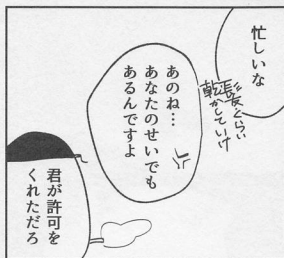 忙しいな
髪くらい
乾かしていけ
あのね…
あなたのせいでも
あるんですよ
君が許可を
くれただろ